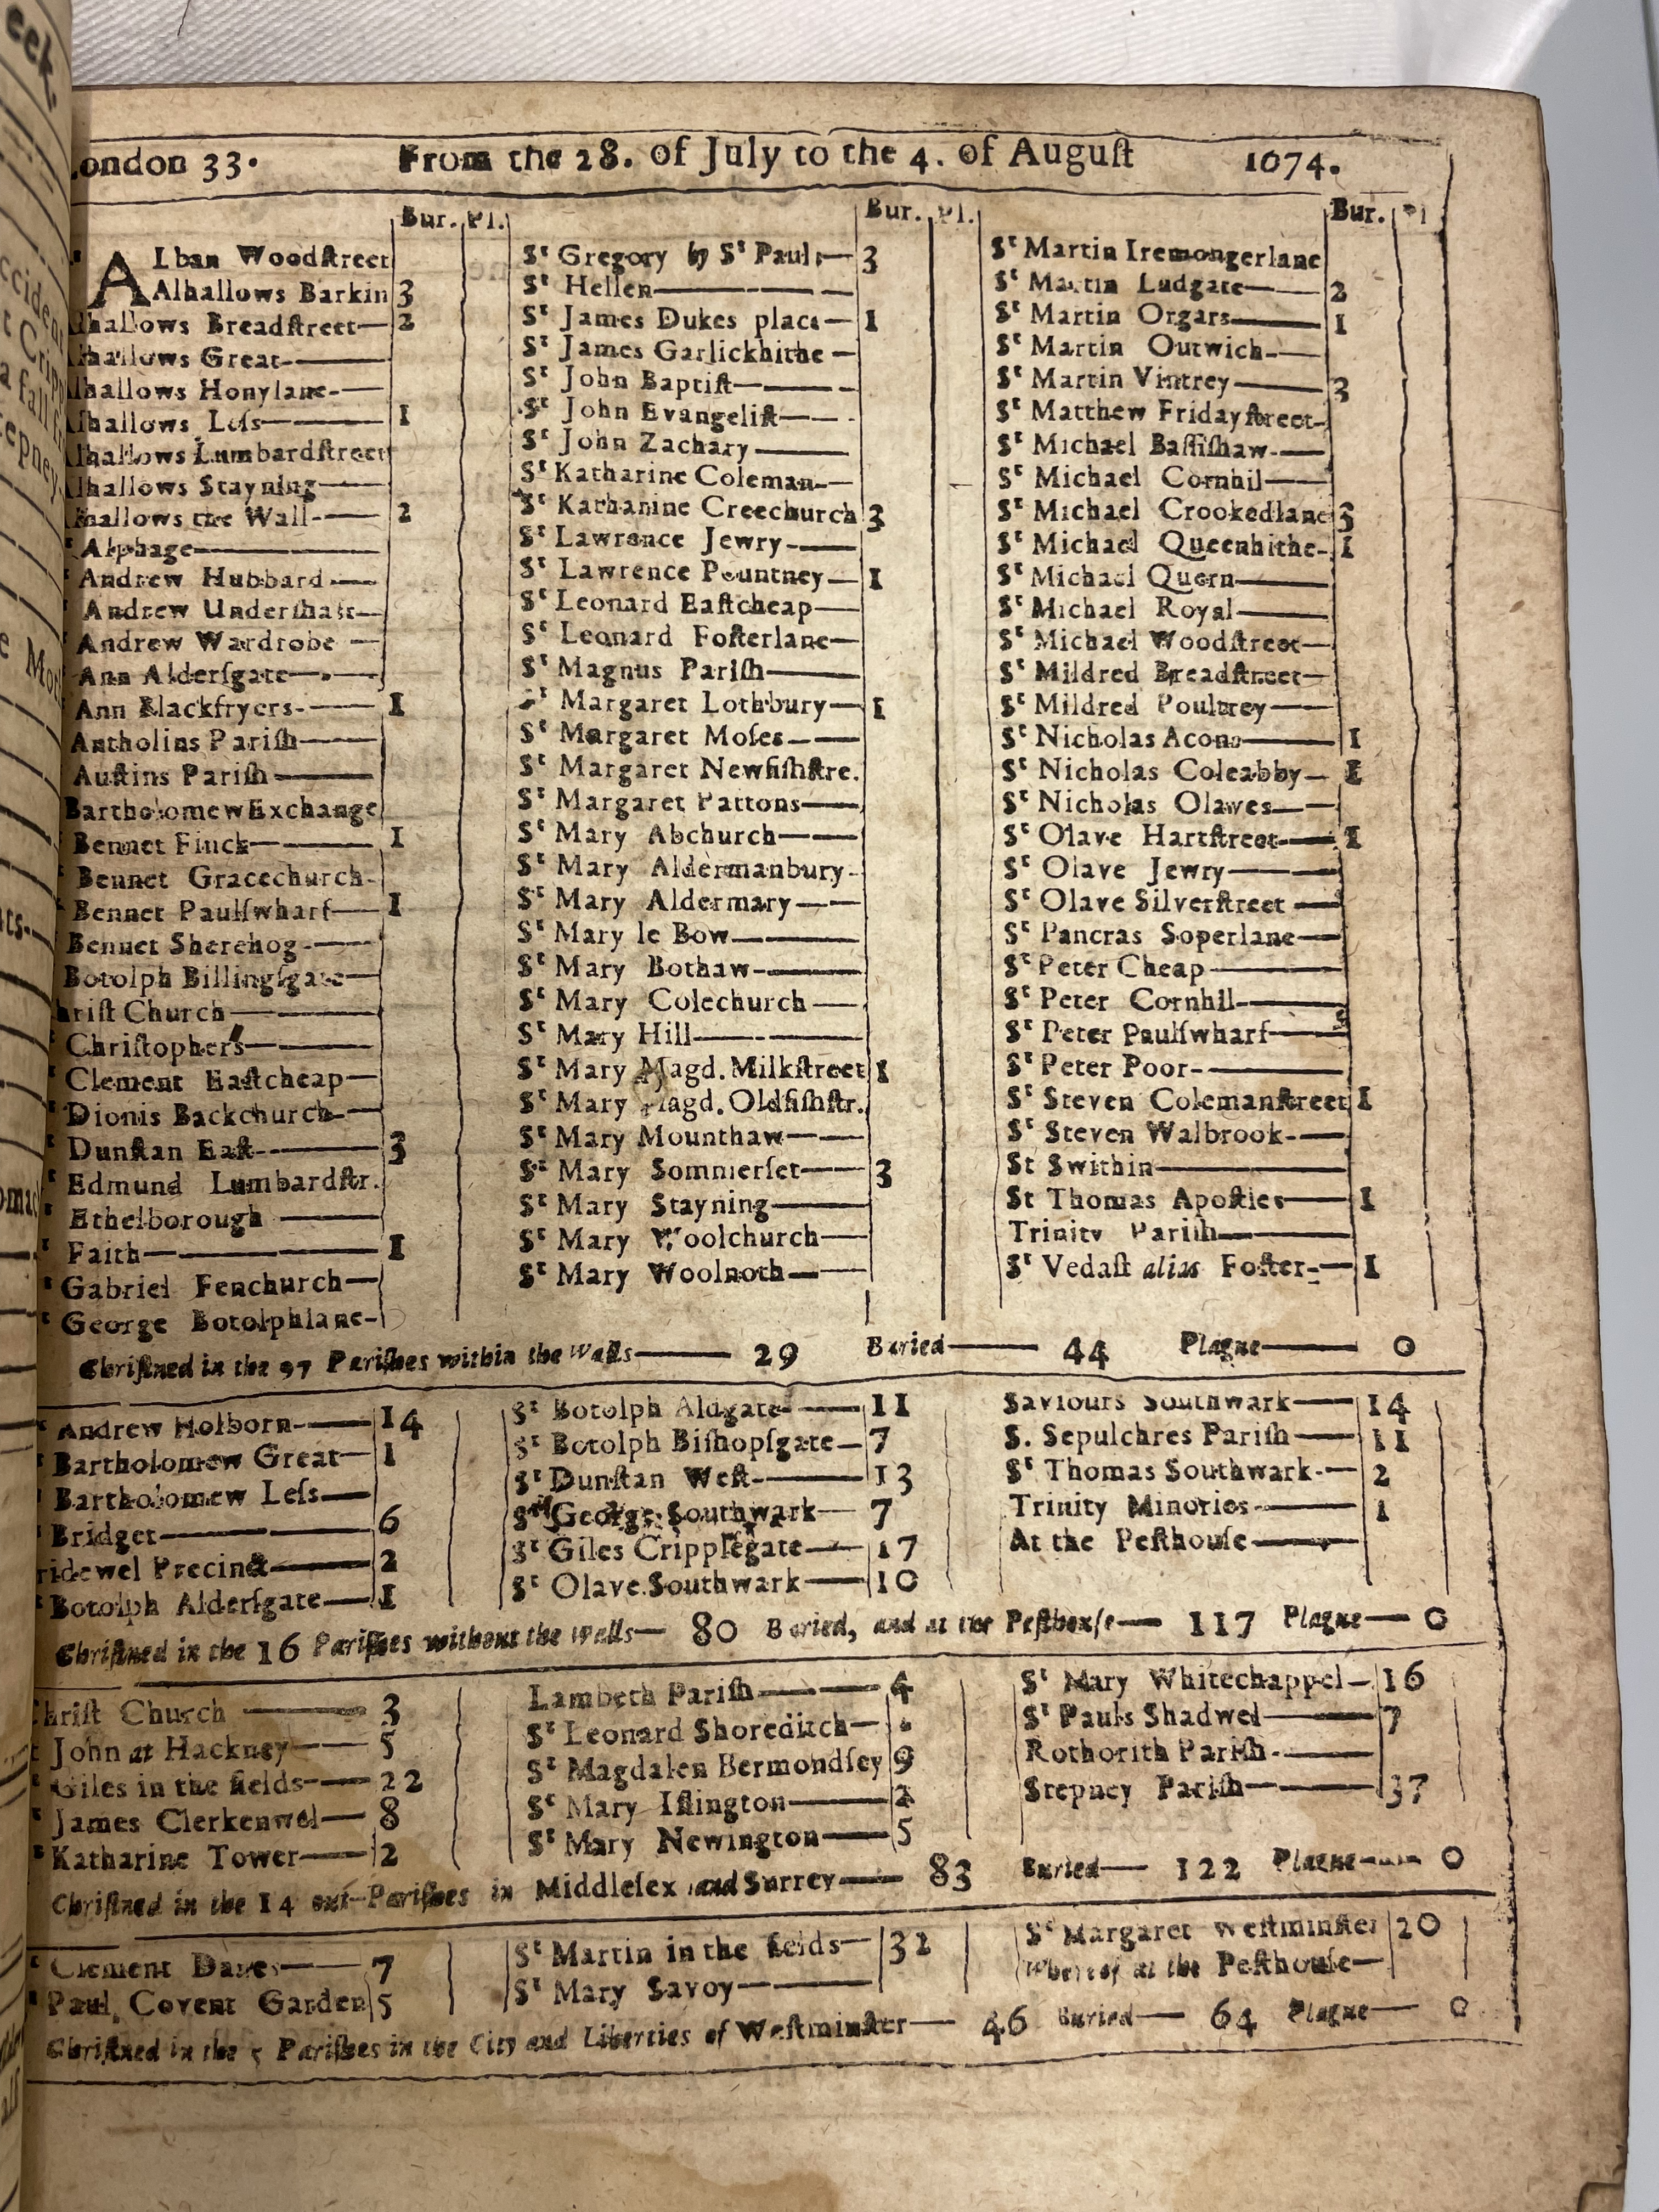 ondon 33. From the 28. of July to the 4. of August 1674.
Bur. Pl.
ALban Woodstreet
Alhallows Barkin 3
lhallows Breadstreet 2
lhallows Great
lhallows Honylane
lhallows Less 1
lhallows Lumbardstreet
lhallows Stayning
hallows the Wall 2
Alphage
Andrew Hubbard
Andrew Undershaft
Andrew Wardrobe
Ann Aldersgate
Ann Blackfryers 1
Antholins Parish
Austins Parish
Bartholomew Exchange
Bennet Finck 1
Bennet Gracechurch
Bennet Paulswharf 1
Bennet Sherehog
Botolph Billingsgate
hrist Church
Christophers
Clement Eastcheap
Dionis Backchurch
Dunstan East 3
Edmund Lumbardstr.
Ethelborough
Faith 1
Gabriel Fenchurch
George Botolphlane
Bur. Pl.
St Gregory by St Paul 3
St Hellen
St James Dukes place 1
St James Garlickhithe
St John Baptist
St John Evangelist
St John Zachary
St Katharine Coleman
St Kathanine Creechurch 3
St Lawrance Jewry
St Lawrence Pountney 1
St Leonard Eastcheap
St Leonard Fosterlane
St Magnus Parish
St Margaret Lothbury 1
St Margaret Moses
St Margaret Newfishstre.
St Margaret Pattons
St Mary Abchurch
St Mary Aldermanbury
St Mary Aldermary
St Mary le Bow
St Mary Bothaw
St Mary Colechurch
St Mary Hill
St Mary Magd. Milkstreet 1
St Mary Magd. Oldfishstr.
St Mary Mounthaw
St Mary Sommerset 3
St Mary Stayning
St Mary Woolchurch
St Mary Woolnoth
Bur. Pl
St Martin Iremongerlane
St Martin Ludgate 2
St Martin Orgars 1
St Martin Outwich
St Martin Vintrey 3
St Matthew Fridaystreet
St Michael Bassishaw
St Michael Cornhil
St Michael Crookedlane 3
St Michael Queenhithe 1
St Michael Quern
St Michael Royal
St Michael Woodstreet
St Mildred Breadstreet
St Mildred Poultrey
St Nicholas Acons 1
St Nicholas Coleabby 1
St Nicholas Olaves
St Olave Hartstreet 1
St Olave Jewry
St Olave Silverstreet
St Pancras Soperlane
St Peter Cheap
St Peter Cornhil
St Peter Paulswharf
St Peter Poor
St Steven Colemanstreet 1
St Steven Walbrook
St Swithin
St Thomas Apostles 1
Trinity Parish
St Vedast alias Foster 1
Christned in the 97 Parishes within the Walls 29 Buried 44 Plague 0
Andrew Holborn 14
Bartholomew Great 1
Bartholomew Less
Bridget 6
ridewel Precinct 2
Botolph Aldersgate 1
St Botolph Aldgate 11
St Botolph Bishopsgate 7
St Dunstan West 13
St George Southwark 7
St Giles Cripplegate 17
St Olave Southwark 10
Saviours Southwark 14
S. Sepulchres Parish 11
St Thomas Southwark 2
Trinity Minories 1
At the Pesthouse
Christned in the 16 Parishes without the Walls 80 Buried, and at the Pesthouse 117 Plague 0
hrist Church 3
John at Hackney 5
Giles in the fields 22
James Clerkenwel 8
Katharine Tower 2
Lambeth Parish 4
St Leonard Shoreditch
St Magdalen Bermondsey 9
St Mary Islington 2
St Mary Newington 5
St Mary Whitechappel 16
St Pauls Shadwel 7
Rothorith Parish
Stepney Parish 37
Christned in the 14 out-Parishes in Middlesex and Surrey 83 Buried 122 Plague 0
Clement Danes 7
Paul Covent Garden 5
St Martin in the fields 32
St Mary Savoy
St Margaret Westminster 20
Whereof at the Pesthouse
Christned in the 5 Parishes in the City and Liberties of Westminster 46 Buried 64 Plague 0